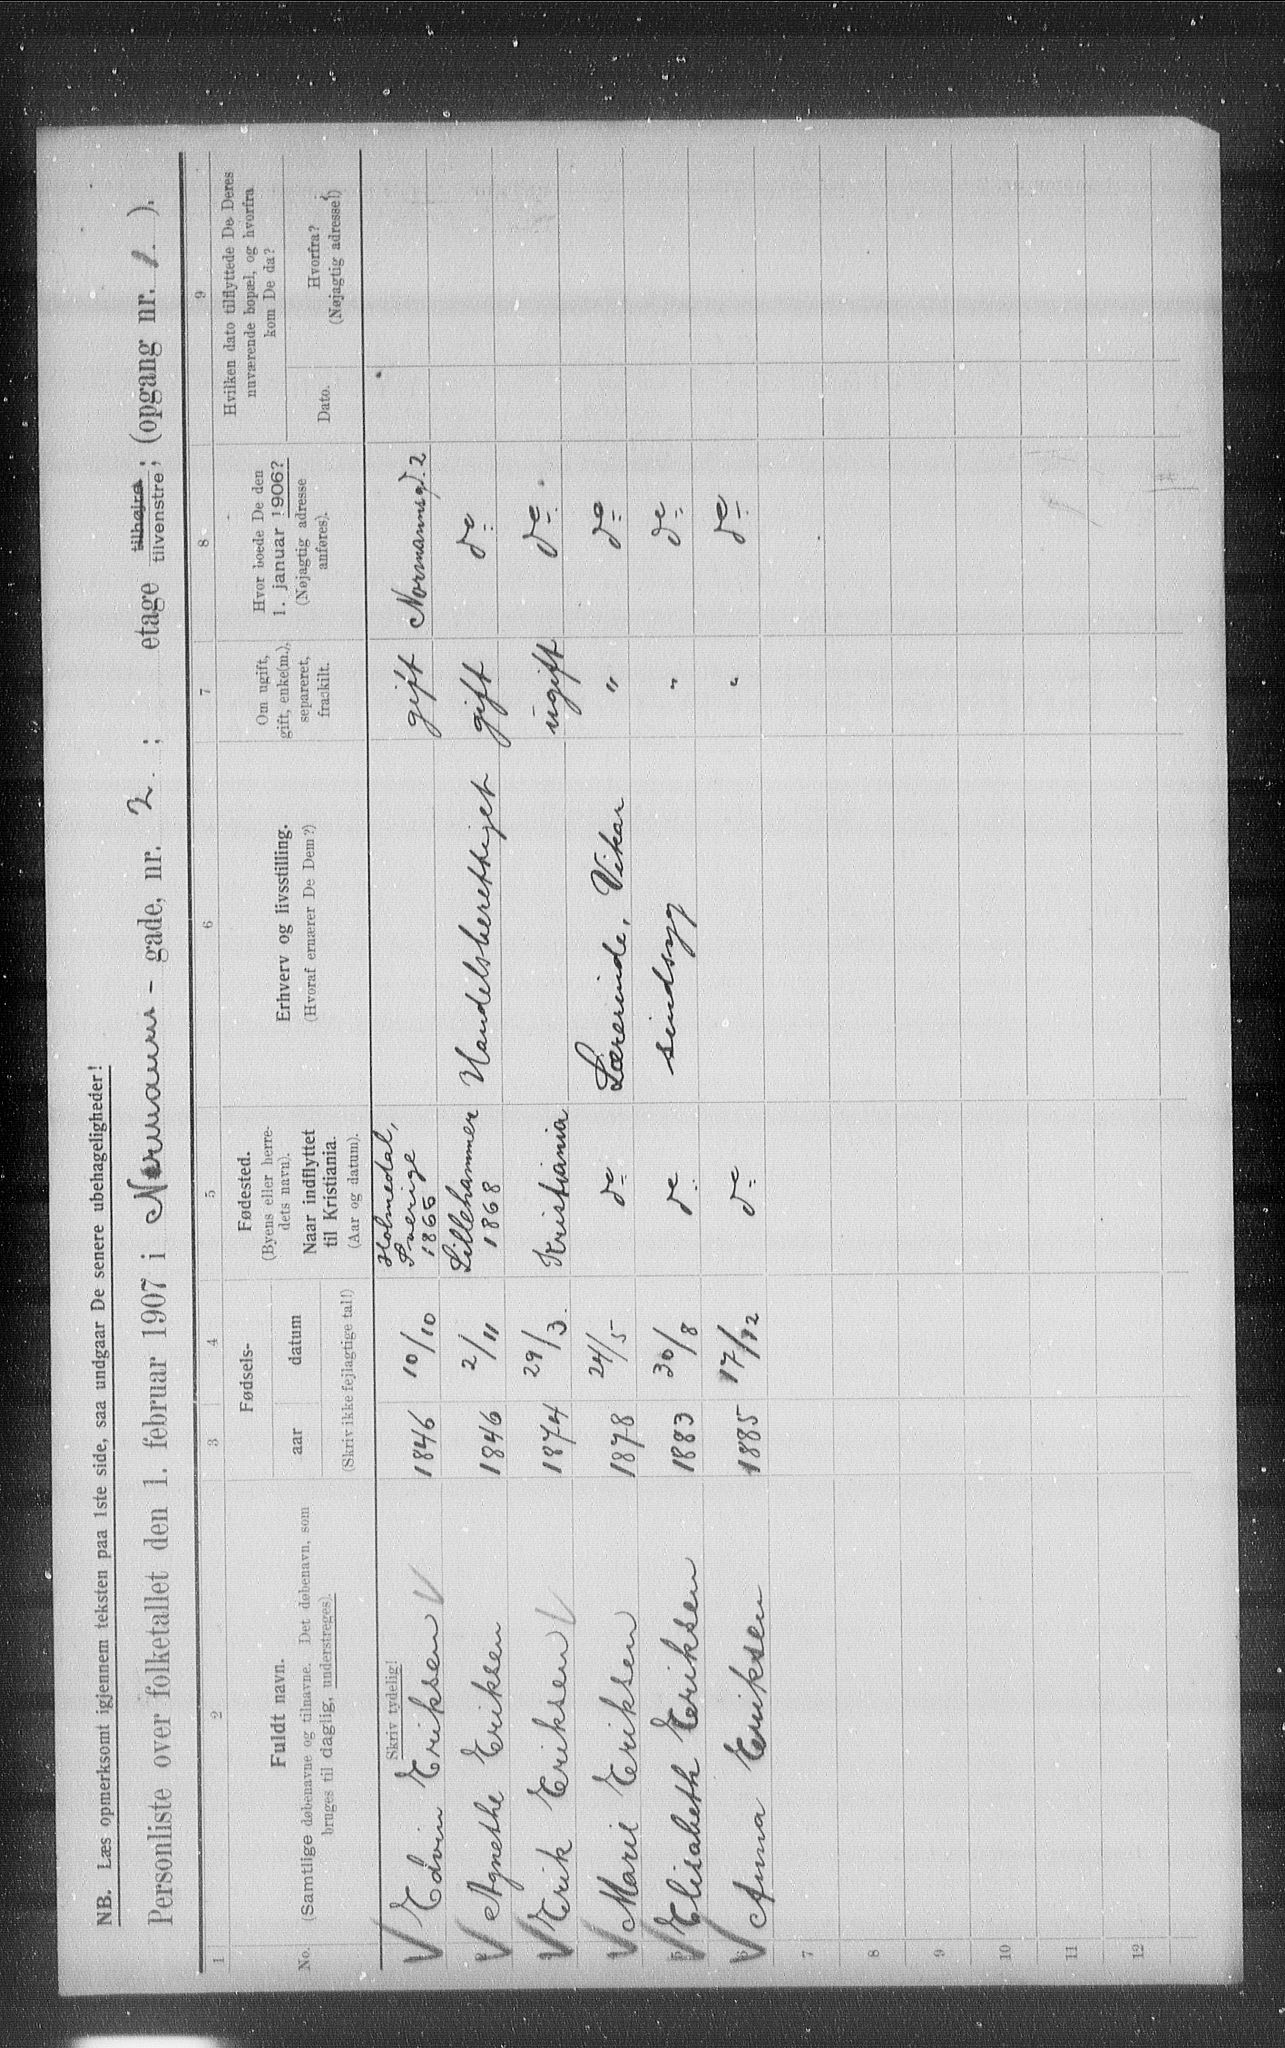 NB. Læs opmerksomt igjennem teksten paa 1ste side, saa undgaar De senere ubehageligheder!
Personliste over folketallet den 1. februar 1907 i Normanns - gade, nr. 2. ; etage tilhøjre; tilvenstre; (opgang nr. 1. ).
1 2 3 4 5 6 7 8 9
No.
Fuldt navn.
(Samtlige døbenavne og tilnavne. Det døbenavn, som
bruges til daglig, understreges).
Fødsels-
aar datum
(Skriv ikke fejlagtige tal!)
Fødested.
(Byens eller herre-
dets navn).
Naar indflyttet
til Kristiania.
(Aar og datum).
Erhverv og livsstilling.
(Hvoraf ernærer De Dem?)
Om ugift,
gift, enke(m.),
separeret,
fraskilt.
Hvor boede De den
1. januar 1906?
(Nøjagtig adresse
anføres).
Hvilken dato tilflyttede De Deres
nuværende bopæl, og hvorfra
kom De da?
Dato.
Hvorfra?
(Nøjagtig adresse!)
Skriv tydelig!
Edvin Eriksen 1846 10/10 Holmedal, Sverige 1866 gift Normannsgd. 2
Agnethe Eriksen 1846 2/11 Lillehammer 1868 Handelsberettiget gift do
Erik Eriksen 1874 29/3. Kristiania ugift do.
Marie Eriksen 1878 24/5 do Lærerinde, Vikar " do
5 Elisabeth Eriksen 1883 30/8 do sindsyg " do
6 Anna Eriksen 1885 17/12 do " do
7
8
9
10
11
12